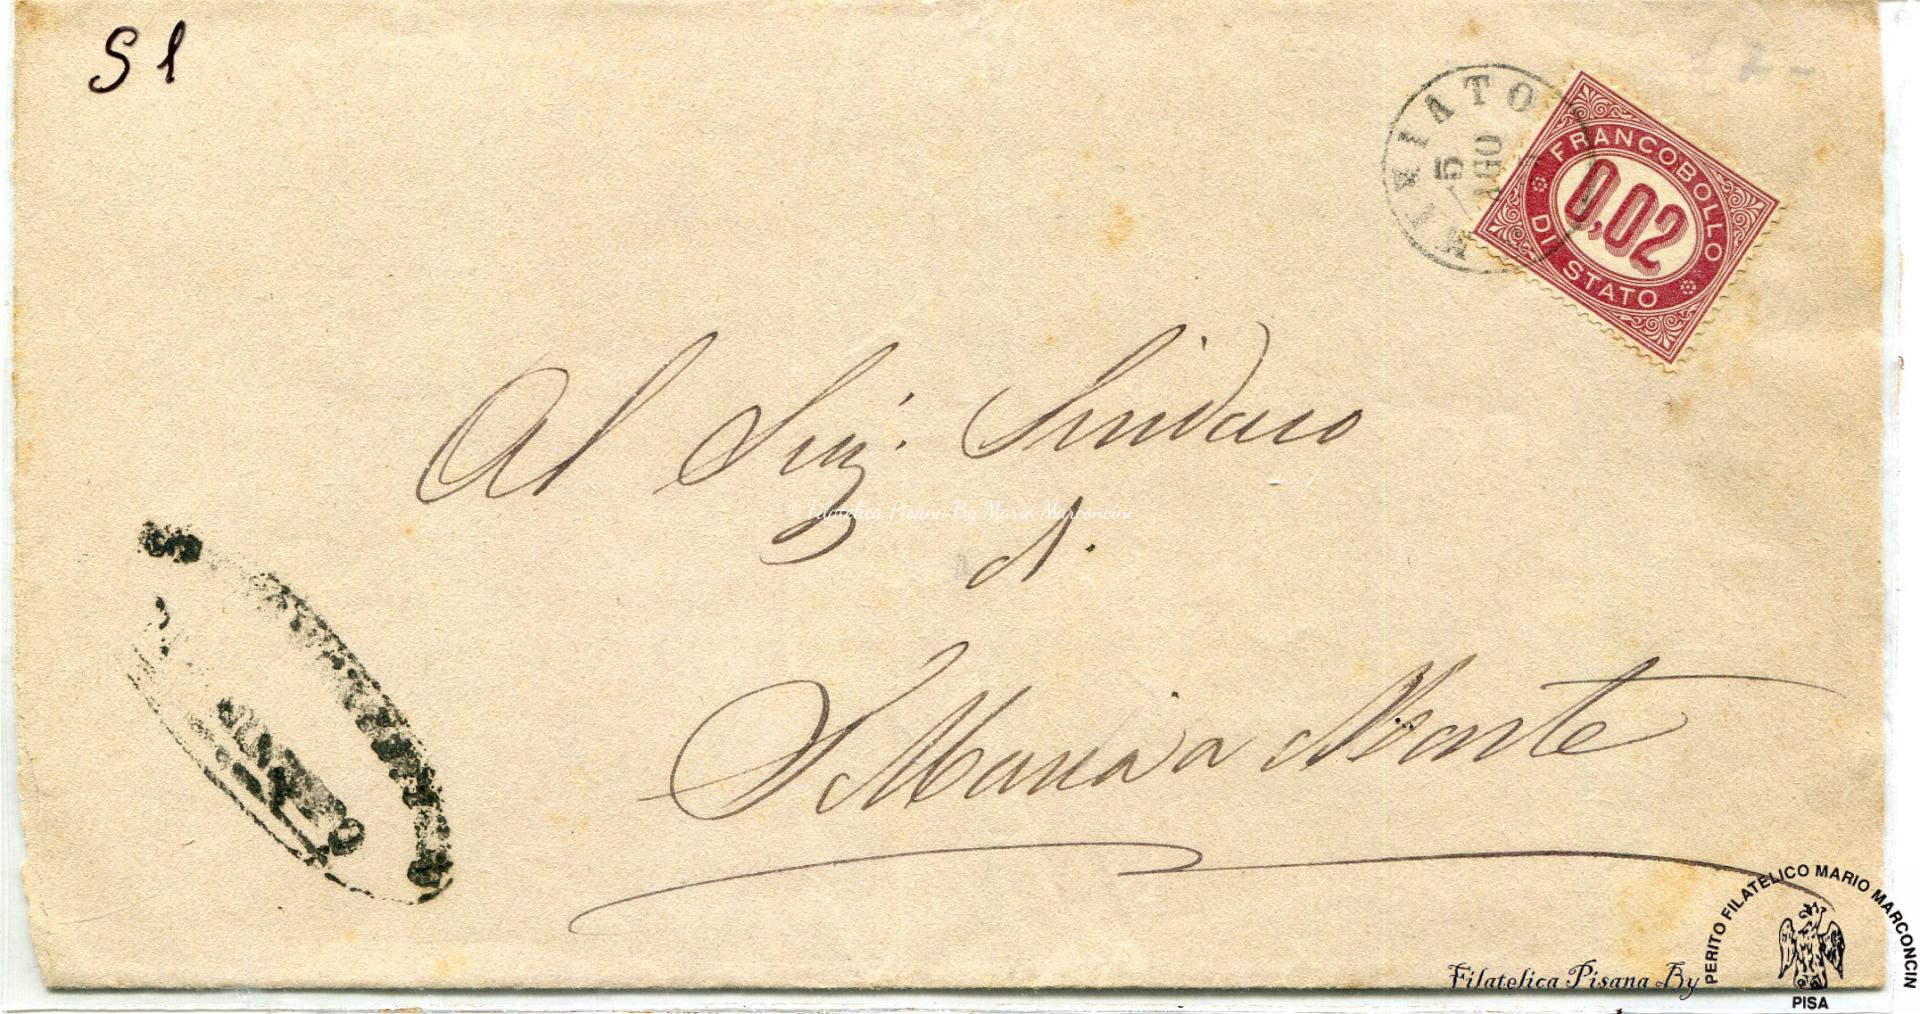 S 1
17-
MINIATO
5
AGO
FRANCOBOLLO
0,02
DI STATO
Al Sig. Sindaco
di
S Maria a Monte
© Filatelica Pisana By Mario Marconcini
Filatelica Pisana By
PERITO FILATELICO MARIO MARCONCIN
PISA